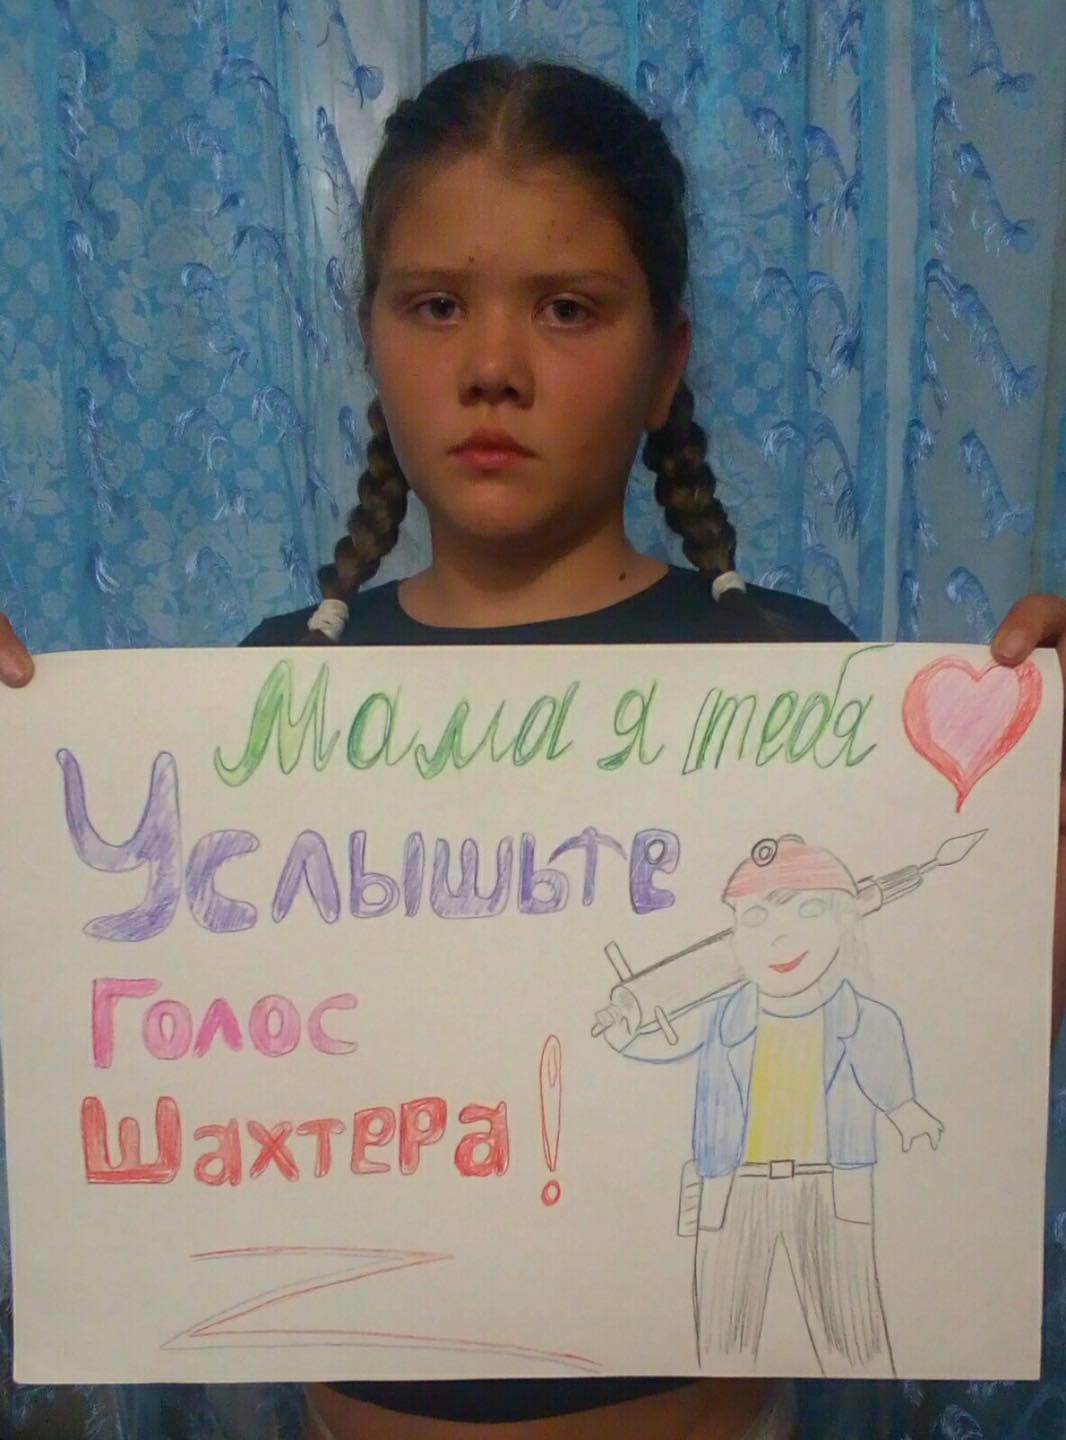 Мама я тебя
Услышьте
Голос
Шахтера!
Z